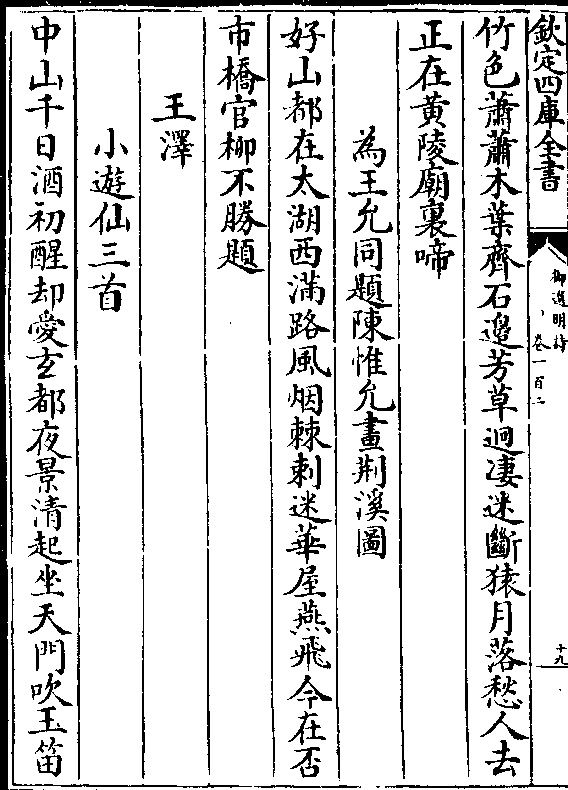 欽定四庫全書
御選明詩
卷一百二
十九
竹色蕭蕭木葉齊石邉芳草迥淒迷斷猿月落愁人去
正在黄陵廟裏啼
為王允同題陳惟允畫荆溪圖
好山都在太湖西滿路風烟棘刺迷華屋燕飛今在否
市橋官柳不勝題
王澤
小遊仙三首
中山千日酒初醒却愛玄都夜景清起坐天門吹玉笛